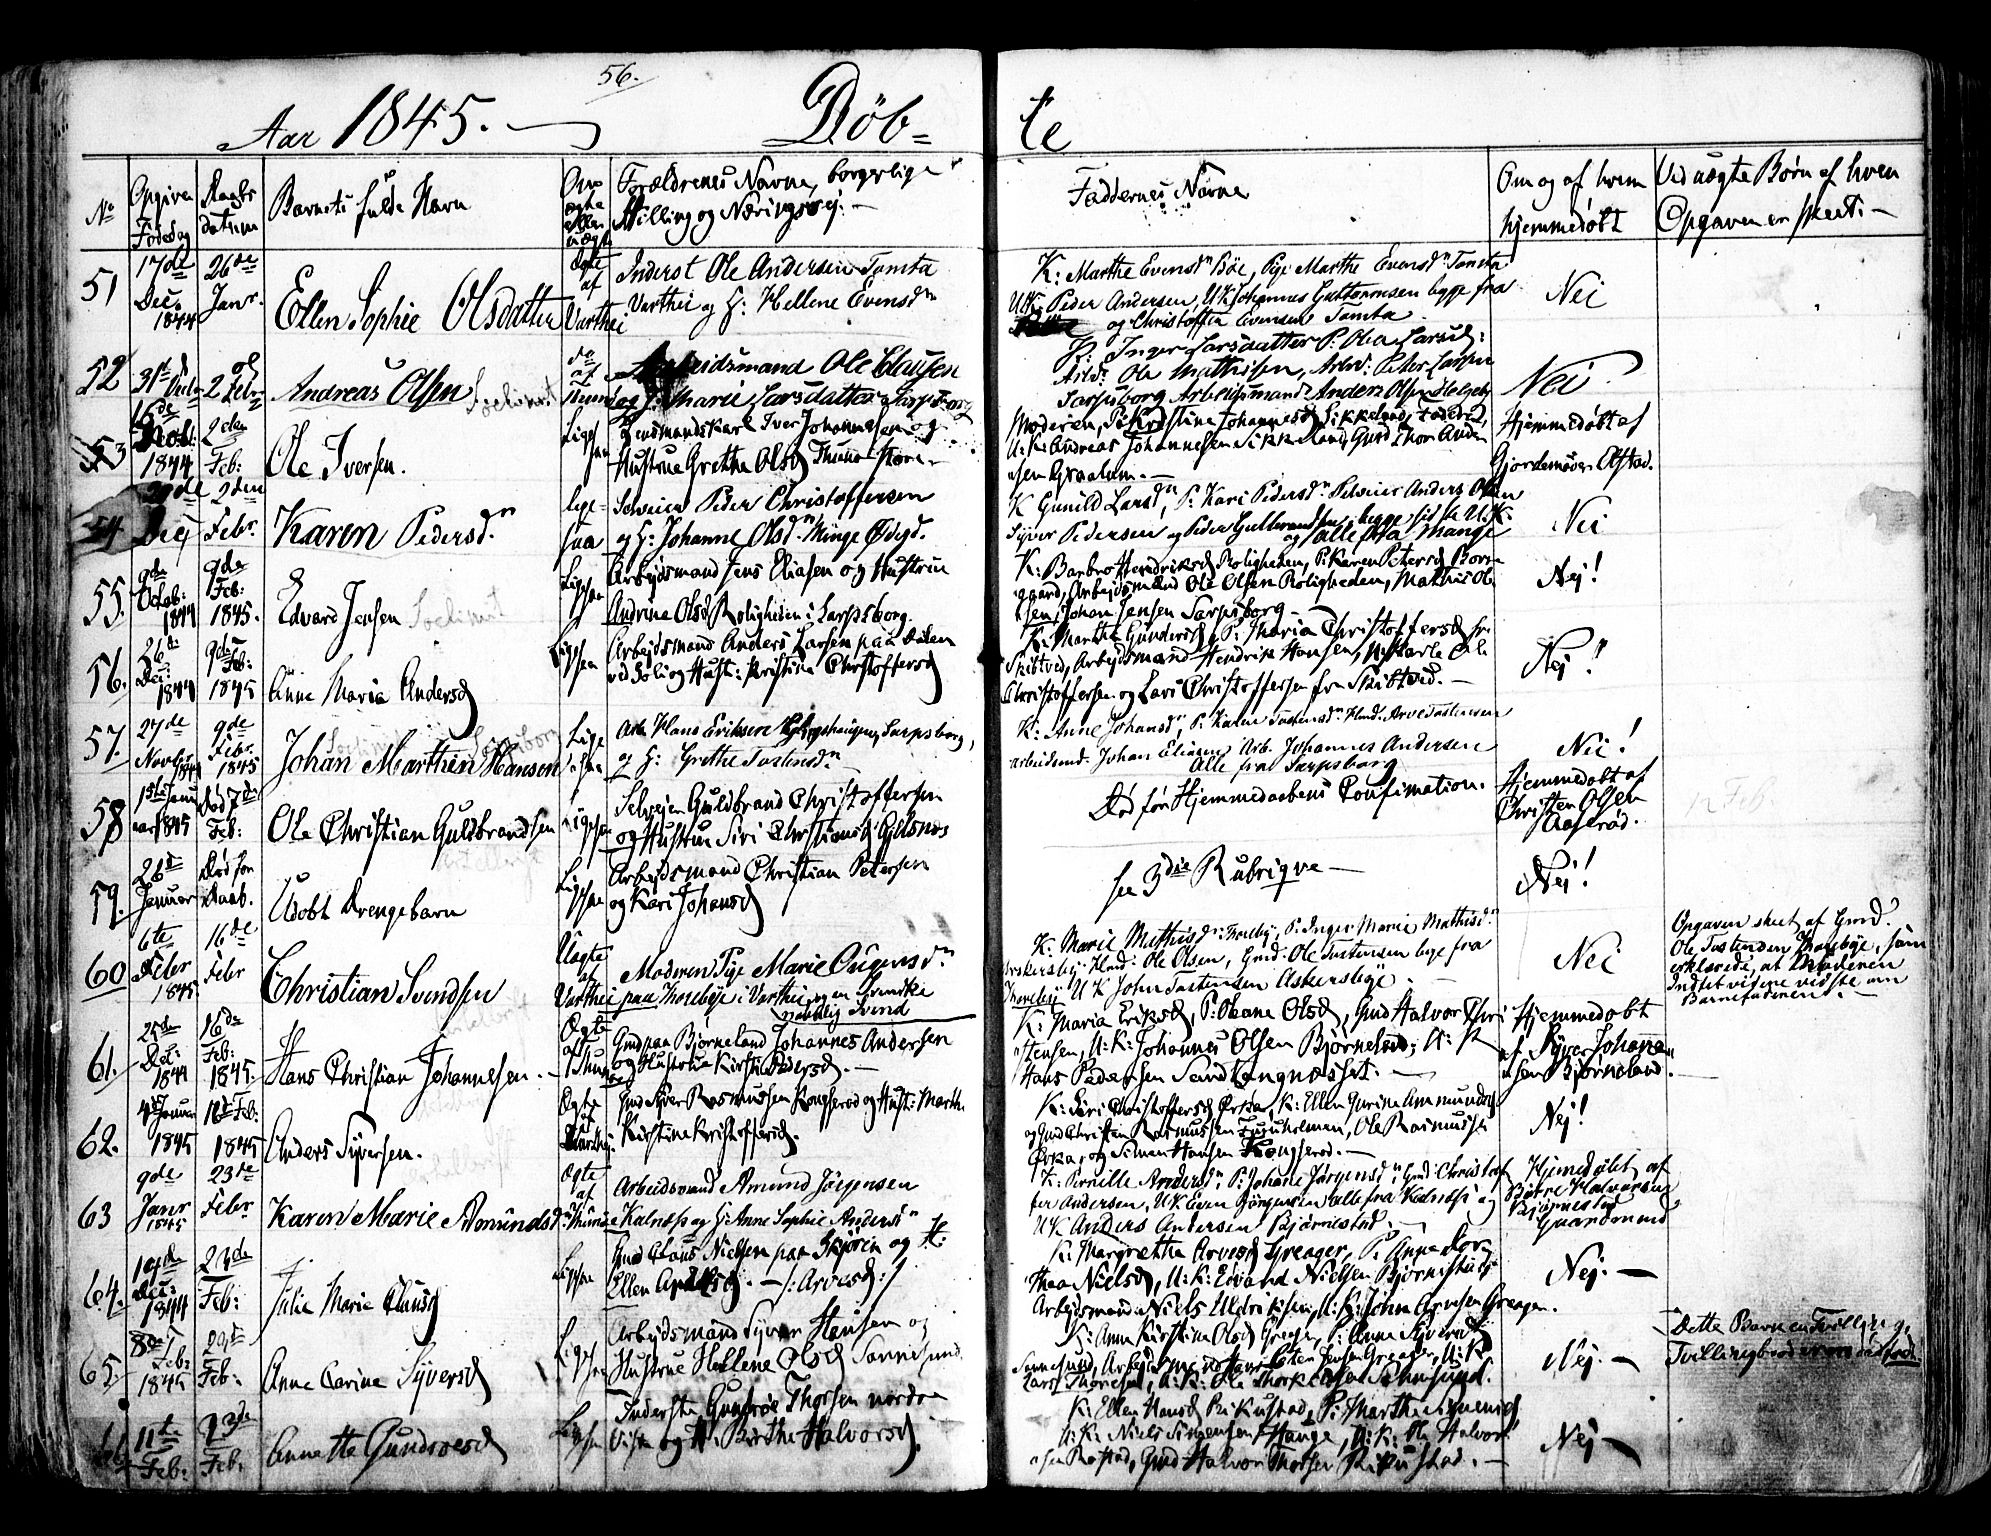 56.
Aar 1845. Døb= te
No
Opgiven Fødedag
Daabs datum
Barnets fulde Navn
Om ægte eller uægte
Forældrenes Navne, borgerlige
Stilling og Næringsvej. —
Faddernes Navne
Om og af hvem
hjemmedøbt
Ved uægte Børn af hvem
Opgaven er skeet. —
51
17de Dec. 1844
26de Janr.
Ellen Sophie Olsdatter
Ægte af Varthei
Inderst Ole Andersen Tomta
Varthei og H: Hellene Evensdn
K: Marthe Evensdn Bøe, Pige Marthe Evensdn Tomta
UK. Peder Andersen, UK Johannes Guttormsen begge fra
og Christoffer Evensen Tomta
Nei
52
31te Octr
2 Febr
Andreas Olsen
do af Thune
Arbeidsmand Ole Clausen
og H: Marie Larsdatter Sarpsborg
K: Inger Larsdatter P: Olea Larsd:
Arbd: Ole Mathisen, Arbd: Peter Larsen
Sarpsborg Arbeidsmand Anders Olsen
Nei
53
16de Octb: 1844
2den Feb:
Ole Iversen.
Ligesaa
Huusmandskarl Iver Johannesen og
Hustrue Grethe Olsd Thune store. —
Moderen, P: Kirstine Johannesd Sikkeland,
U: K: Andreas Johannesen Sikkeland Gmd Thor Ander
sen Graalum. —
Hjemmedøbt af
Gjordemoder Alstad.
54
29de Decj
2den Febr.
Karen Pedersdn
lige= saa
Selveier Peder Christoffersen
og H: Johanne Olsdn Minge Ødegd.
K Gunild Larsdn, P: Kari Pedersdn Selveier Anders Olsen
Syver Pedersen og Peder Gulbrandsen, begge sidste U.K.
og alle fra Minge
Nei
55.
9de Octob: 1844
9de Feb: 1845.
Edvard Jensen
Ligesaa
Arbejdsmand Jens Eliasen og Hustrue
Andrine Olsd Roligheden i Sarpsborg.
K: Barbro Hendriksd Roligheden, P: Karen Petersd Borre
gaard, Arbejdsmænd Ole Olsen Roligheden, Mathis Ol
sen, Johan Jensen Sarpsborg —
Nej!
56.
26de Dec: 1844
9de Feb: 1845
Anne Maria Andersd
Ligesaa
Arbejdsmand Anders Larsen paa Dalen
ved Soli og Hust: Kristine Christoffersd
K: Marthe Gundersd, P: Maria Christoffersd fr:
Skibtved, Arbejdsmand Hendrik Hansen, U: Karle Ole
Christoffersen og Lars Christoffersen fra Skibtved. —
Nej!
57.
27de Novbr 1844
9de Febr. 1845
Johan Marthin Hansen
Lige saa
Arb. Hans Eriksen Sarpsborg,
og H: Grethe Tostensdn
K: Anne Johansdn, P: Karen Tostensdn Hmd. Arve Tostensen
arbeidsmd. Johan Eliasen Arb. Johannes Andersen
Alle fra Sarpsborg
Nei!
58
1ste Januar 1845
Død 7de Feb:
Ole Christian Guldbrandsen
Ligesaa
Selvejer Guldbrand Christoffersen
og Hustrue Siri Christiansd
Død før Hjemmedaabens Confirmation.
Hjemmedøbt af
Christen Olsen
Aaserød.
12 Feb.
59.
28de Januar
Død før Daab.
Udøbt Drengebarn
Ligesaa
Arbejdsmand Christian Petersen
og Kari Johansd
see 3die Rubrique —
Nej!
60
6te Febr 1845
16de Febr
Christian Svendsen
Uægte af Varthei
Moderen Pige Marie
paa Thorebye i Varthei og en Svendske
navnlig Svend
K: Marie Mathisdn Thoreby, P. Inger Marie Mathisdn
Askersby Hmd: Ole Olsen, Gmd. Ole Tostensen bege fra
Thoreby U K John Tostensen Askersbye —
Nei
Opgaven skeet af Gmd.
Ole Tostensen Thorebye, som
erklærede, at Moderen
Indtet videre vidste om
Barnefaderen. —
61.
25de Dec: 1844
16de Feb: 1845.
Hans Christian Johannesen.
Ægte af Thune
Gmd paa Bjørneland Johannes Andersen
og Hustrue Kirstie Pedersd. —
K: Maria Eriksd, P: Oleane Olsd, Gmd Halvor Chri
stensen, U: K: Johannes Olsen Bjørneland; U: K
Hans Pedersen Sandtangnesset. —
Hjemmedøbt
af Syver Johanne
sen Bjørneland.
62.
4de Januar 1845
16de Feb: 1845
Anders Syversen.
Ægte af Varthei
Gmd Syver Rasmussen Kongserød og Hust: Marthe
Kirstine Kristoffersd.
K: Siri Christoffersd Ørkar, K: Ellen Gurine Ammundsd
og Gmd Christen Rasmussen Furuholmen, Ole Rasmussen
Ørkar og Simen Hansen Kongserød. —
Nej!
63
9de Janr 1845
23de Febr
Karen Marie Amundsd.
Ægte af Thune
Arbeidsmand Amund Jørgensen
Kalnæss og H: Anne Sophie Andersdn
K: Pernille Andersdn, P: Johane Jørgensdn, Gmd Christof
fer Andersen, UK Even Jørgensen alle fra Kalnæss og
UK Anders Andersen Bjørnestad. —
Hjemdøbt af
Halvorsen
Bjørnestad
Gaardmand
64.
19de Dec: 1844
23de Feb:
Julie Marie Clausd
Ligesaa
Gmd Claus Nielsen paa Skjøren og H:
Ellen — /: Arvesd :/
K: Margrethe Arvesd Greager, P: Anne Dor
thea Nielsd, U: K: Edvard Nielsen Bjørnestad
Arbejdsmand Niels Uldriksen, U: K: John Arvesen Greager.
Nej. —
65.
8de Feb: 1845
23de Feb:
Anne Carine Syversd
Ligesaa
Arbejdsmand Syver Hansen og
Hustrue Hellene Olsd Sannesund.
K: Anne Kirstine Olsd Greager, P: Anne Syversd
Sannesund, Arbejdsmand Peter Jensen Greager, U: K
Lars Thoresen, U: K: Ole Thorkildsen Sannesund.
Nej. —
Dette Barn en Tvilling,
Tvillingbroderen dødfød.
66.
11te Feb:
23de Feb:
Annette Gundroesd
Ligesaa
Inderste Gundroe Thorsen nordre
og H: Birthe Halvorsd.
K: Ellen Hansd Rikustad, P: Marthe Simensd
U: K: Niels Hauge, U: K: Ole Halvor
sen Rostad, Gmd Halvor Thorsen Rikustad. —
Nej —